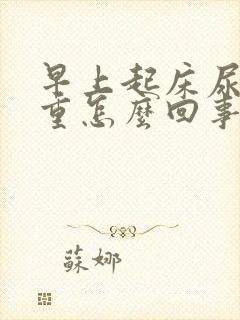 早上起床尿
重怎麼回事
蘇娜